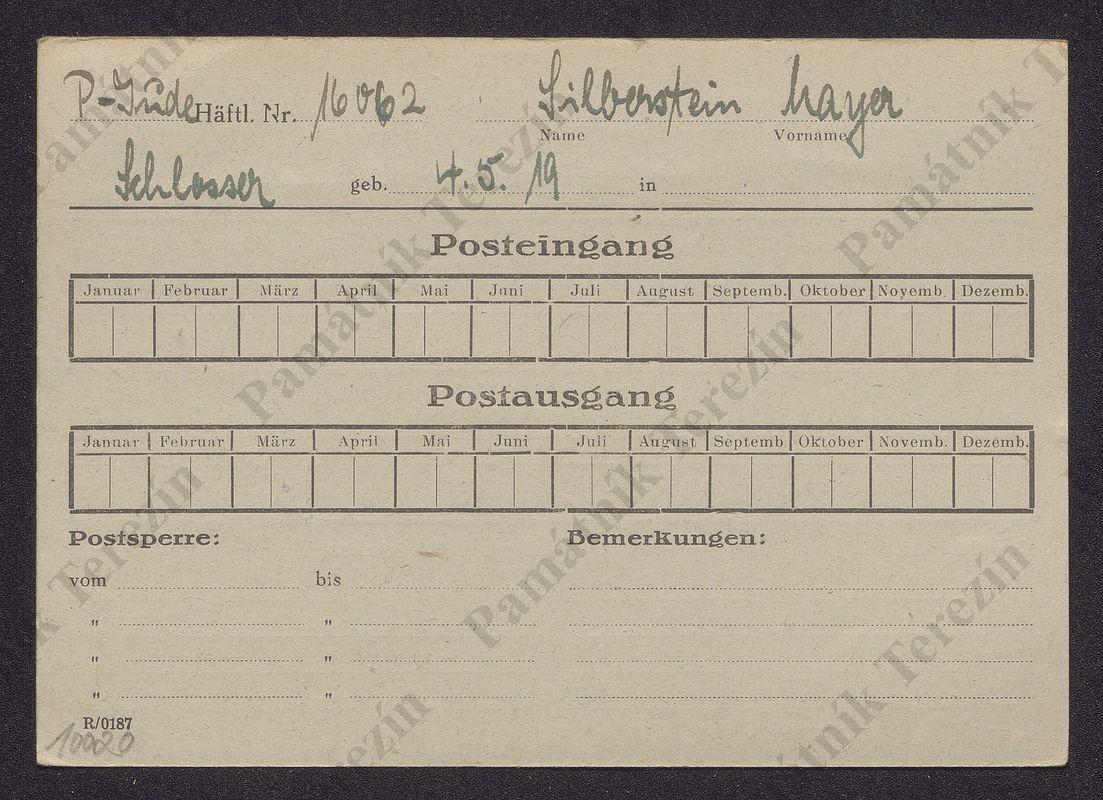 P-Jude Häftl. Nr. 16062 Silberstein Mayer
Name Vorname
Schlosser geb. 4.5.19 in
Posteingang
Januar Februar März April Mai Juni Juli August Septemb. Oktober Novemb. Dezemb.
Postausgang
Januar Februar März April Mai Juni Juli August Septemb. Oktober Novemb. Dezemb.
Postsperre: Bemerkungen:
vom bis
" "
" "
" "
R/0187
10020
Památník Terezín
Památník Terezín
Památník Terezín
Památník Terezín